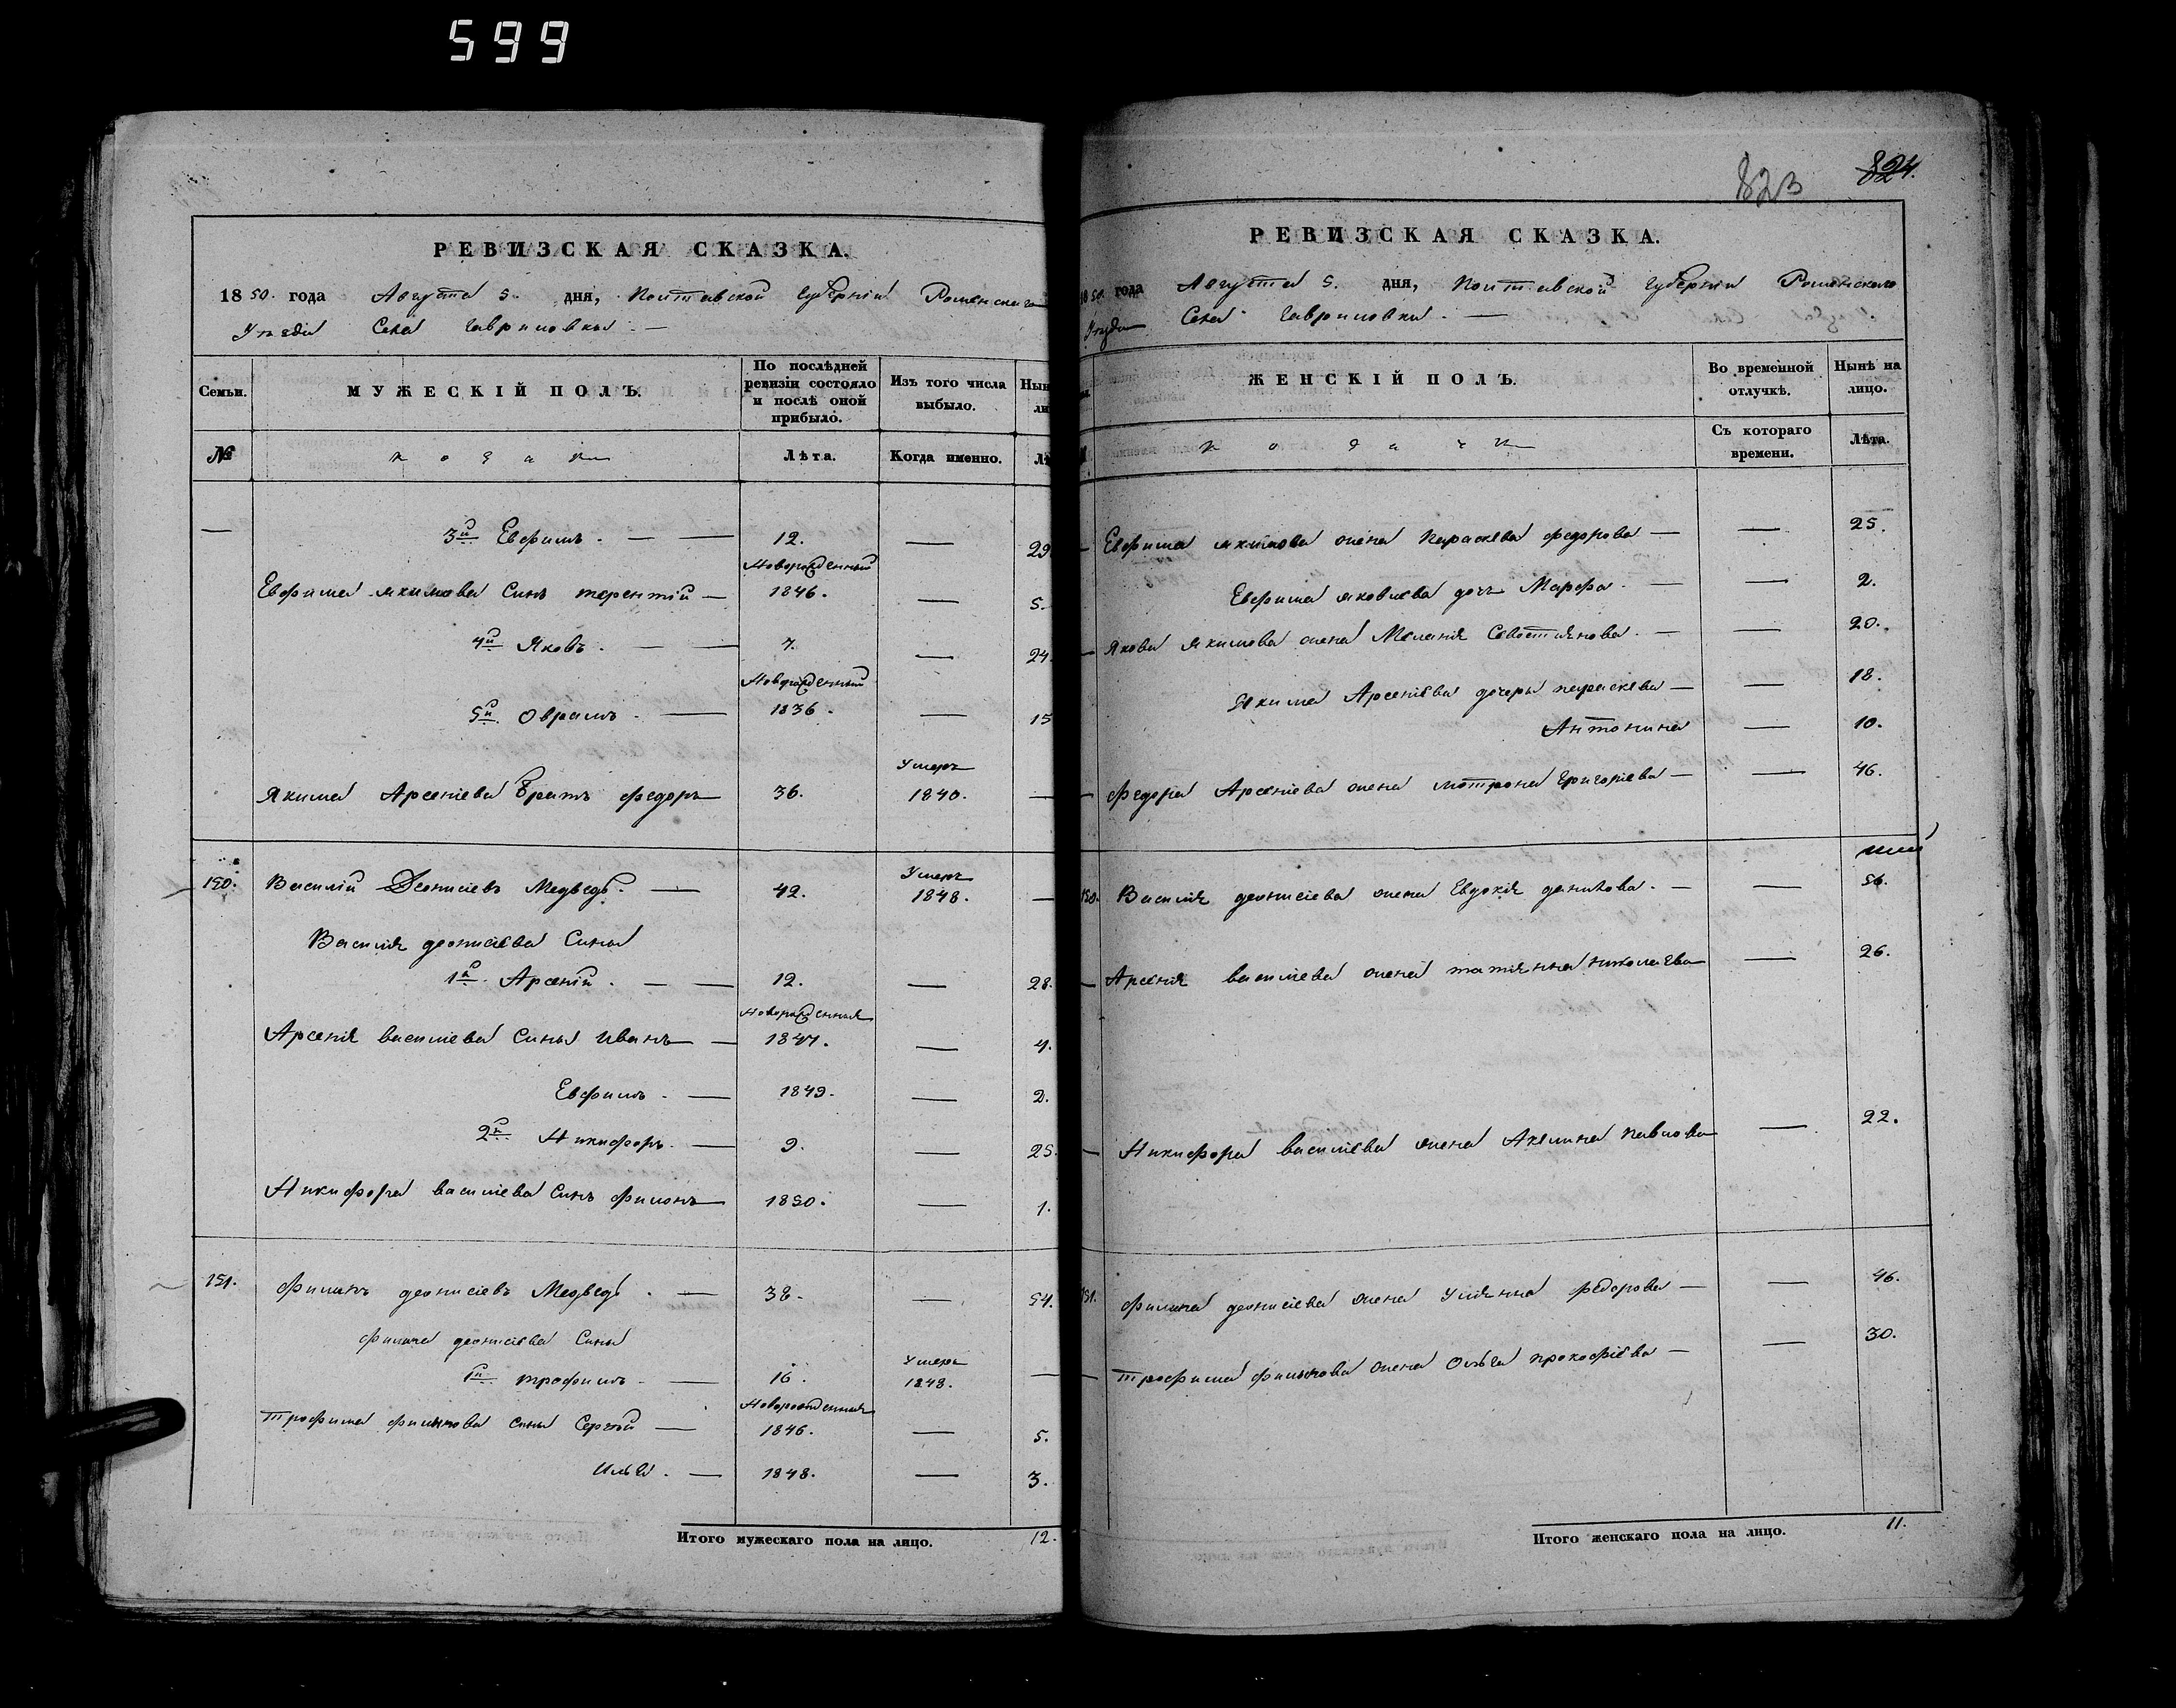 599
РЕВИЗСКАЯ СКАЗКА.
1850. года Августа 5. дня, Полтавской Губерніи Роменскаго
Уѣзда Села Гавриловки. —
Семьи. МУЖЕСКІЙ ПОЛЪ. По послѣдней ревизіи состояло и послѣ оной прибыло. Изъ того числа выбыло. Нын ли
№ козаки Лѣта. Когда именно. Лѣ
— 3й Евфимъ. — — 12. — 29
Новорожденный
Евфима Якимова Сынъ Терентій — 1846. — 5.
4й Яковъ. — — 7. — 24.
Новорожденный
5й Оврамъ. — 1836. — 15
Умеръ
Якима Арсеніева Братъ Федоръ 36. 1840. —
Умеръ
150. Василій Деонисіевъ Медведь. — 42. 1848. —
Василія деонисіева Сыны
1й Арсеній. — — 12. — 28.
Новорожденныя
Арсенія василіева Сыны Иванъ — 1847. — 4.
Евфимъ. — 1849. — 2.
2й Никифоръ. — 9. — 25.
Никифора василіева Сынъ Филонъ 1850. — 1.
151. Филонъ деонисіевъ Медведь. — 38. — 54.
Филона деонисіева Сыны
Умеръ
1й Трофимъ. — 16. 1848. —
Новорожденныя
Трофима Филонова Сыны Сергѣй — 1846. — 5.
Илья. — 1848. — 3.
Итого мужескаго пола на лицо. 12.
823 824.
РЕВИЗСКАЯ СКАЗКА.
1850 года Августа 5. дня, Полтавской Губерніи Роменскаго
Уѣзда Села Гавриловки. —
ЖЕНСКІЙ ПОЛЪ. Во временной отлучкѣ. Нынѣ на лицо.
козачки Съ котораго времени. Лѣта.
— Евфима Якимова жена Параскева Федорова — — 25.
Евфима Яковлева дочь Марфа. — — 2.
— Якова Якимова жена Меланія Севостіянова. — — 20.
Якима Арсеніева дочери параскева — — 18.
Антонина — 10.
— Федора Арсеніева жена мотрона Григоріева — — 46.
150. Василія деонисіева жена Евдокія данилова. — — 56.
— Арсенія василіева жена татіянна николаева — 26.
— Никифора василіева жена Акелина павлова — 22.
151. Филона деонисіева жена Уліянна Федорова — — 46.
— Трофима филонова жена Ольга прокофіева — — 30.
Итого женскаго пола на лицо. 11.